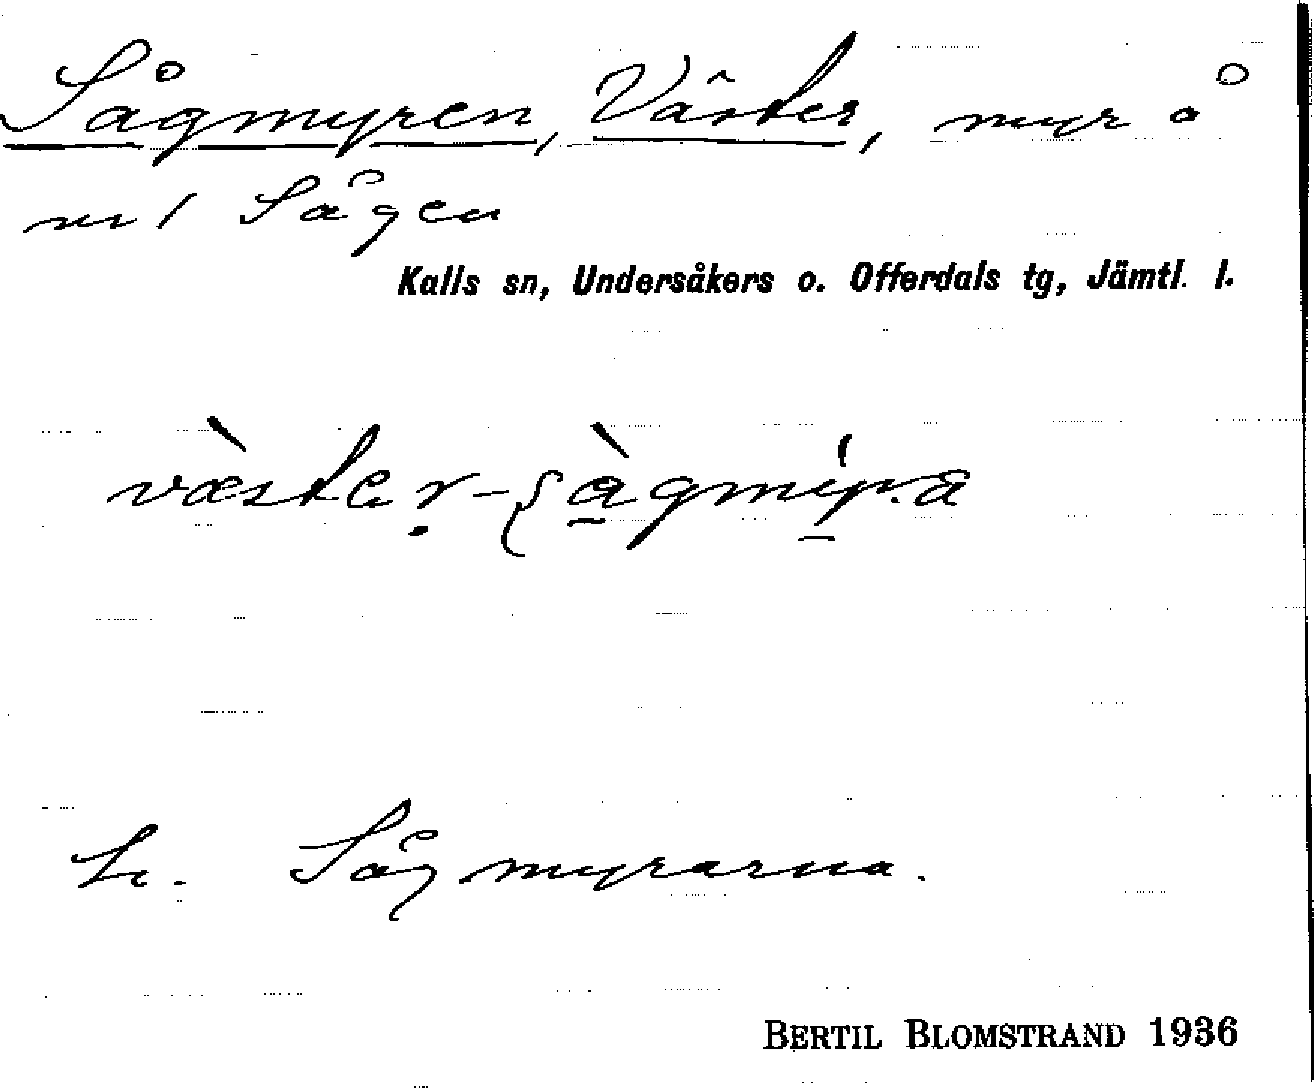 Sågmyren, Väster, myr å
nr 1 Sågen
Kalls sn, Undersåkers o. Offerdals tg, Jämtl. l.
Sågmyrarna.
BERTIL BLOMSTRAND 1936